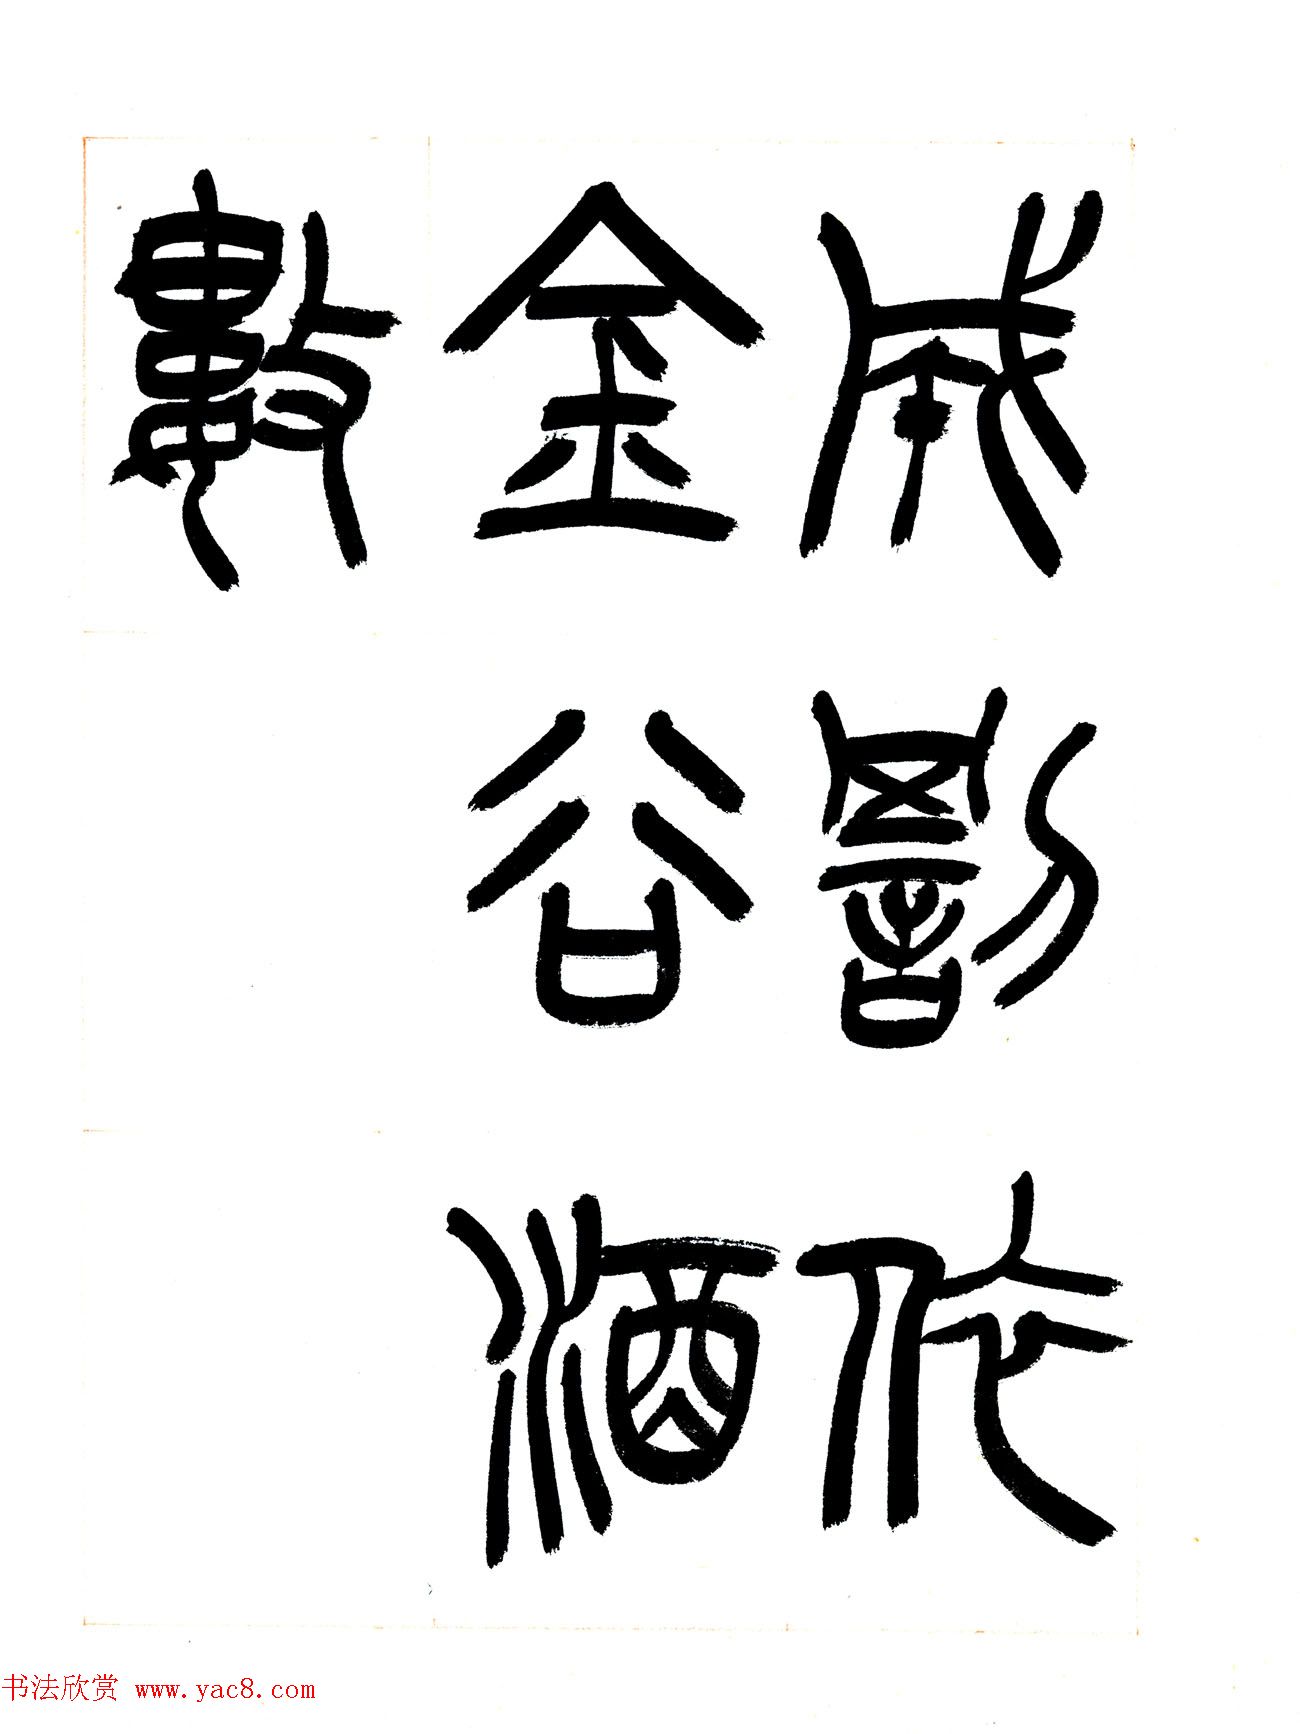 成罰依
金谷酒
數
书法欣赏 www.yac8.com